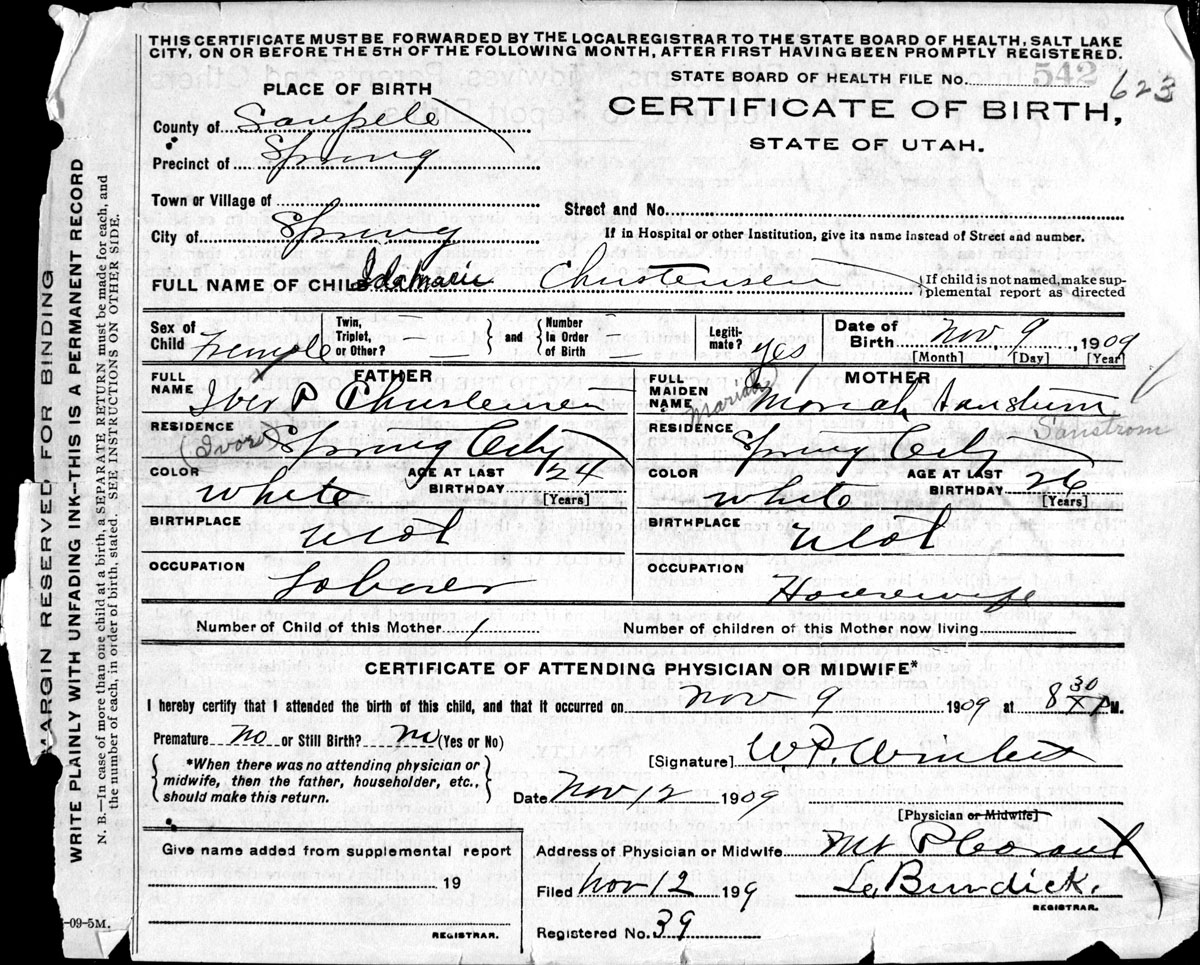 THIS CERTIFICATE MUST BE FORWARDED BY THE LOCALREGISTRAR TO THE STATE BOARD OF HEALTH, SALT LAKE
CITY, ON OR BEFORE THE 5TH OF THE FOLLOWING MONTH, AFTER FIRST HAVING BEEN PROMPTLY REGISTERED.
STATE BOARD OF HEALTH FILE No. 542 623
PLACE OF BIRTH
CERTIFICATE OF BIRTH,
STATE OF UTAH.
County of Sanpete
Precinct of Spring
Town or Village of
Street and No.
City of Spring
If in Hospital or other Institution, give its name instead of Street and number.
FULL NAME OF CHILD Ida Marie Christensen {If child is not named, make sup-
plemental report as directed
Sex of Child Female
Twin, Triplet, or Other? — } and { Number in Order of Birth —
Legiti-mate? yes
Date of Birth Nov 9, 1909
[Month] [Day] [Year]
FATHER
FULL NAME Iver P Christensen
(Ivor)
RESIDENCE Spring City
COLOR white
AGE AT LAST BIRTHDAY 24
[Years]
BIRTHPLACE Utah
OCCUPATION Laborer
MOTHER
FULL MAIDEN NAME Moriah
Sanstrom
RESIDENCE Spring City
COLOR white
AGE AT LAST BIRTHDAY 26
[Years]
BIRTHPLACE Utah
OCCUPATION Housewife
Number of Child of this Mother 1
Number of children of this Mother now living
CERTIFICATE OF ATTENDING PHYSICIAN OR MIDWIFE*
I hereby certify that I attended the birth of this child, and that it occurred on Nov 9 1909 at 8 30 P M.
Premature No or Still Birth? no (Yes or No)
*When there was no attending physician or
midwife, then the father, householder, etc.,
should make this return.
[Signature] W. P.
Date Nov 12 1909
[Physician or Midwife]
Give name added from supplemental report
19
REGISTRAR.
Address of Physician or Midwife Mt Pleasant
Filed Nov 12 190 9 Burdick.
REGISTRAR.
Registered No. 39
-09-5M.
MARGIN RESERVED FOR BINDING
WRITE PLAINLY WITH UNFADING INK—THIS IS A PERMANENT RECORD
N. B.—In case of more than one child at a birth, a SEPARATE RETURN must be made for each, and
the number of each, in order of birth, stated. SEE INSTRUCTIONS ON OTHER SIDE.